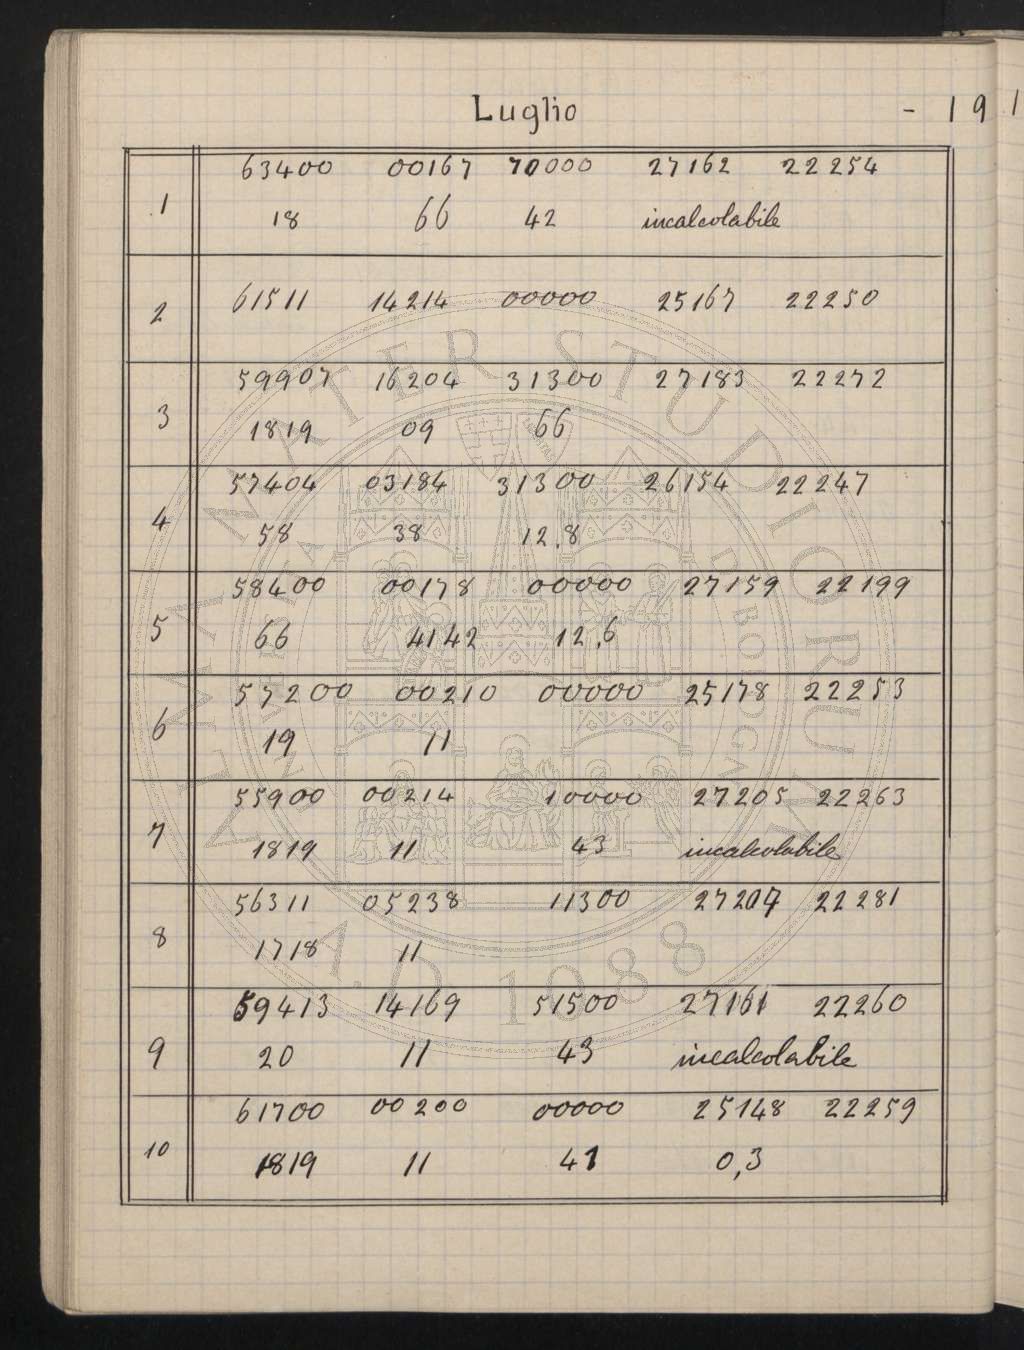 Luglio - 191
1 63400 00167 70000 27162 22254
18 66 42 incalcolabile
2 61511 14214 00000 25167 22250
3 59907 16204 31300 27183 22272
1819 09 66
4 57404 03184 31300 26154 22247
58 38 12,8
5 58400 00178 00000 27159 22199
66 4142 12,6
6 57200 00210 00000 25178 22253
19 11
7 55900 00214 10000 27205 22263
1819 11 43 incalcolabile
8 56311 05238 11300 27207 22281
1718 11
9 59413 14169 51500 27161 22260
20 11 43 incalcolabile
10 61700 00200 00000 25148 22259
1819 11 41 0,3
ALMA MATER STUDIORUM
A.D. 1088